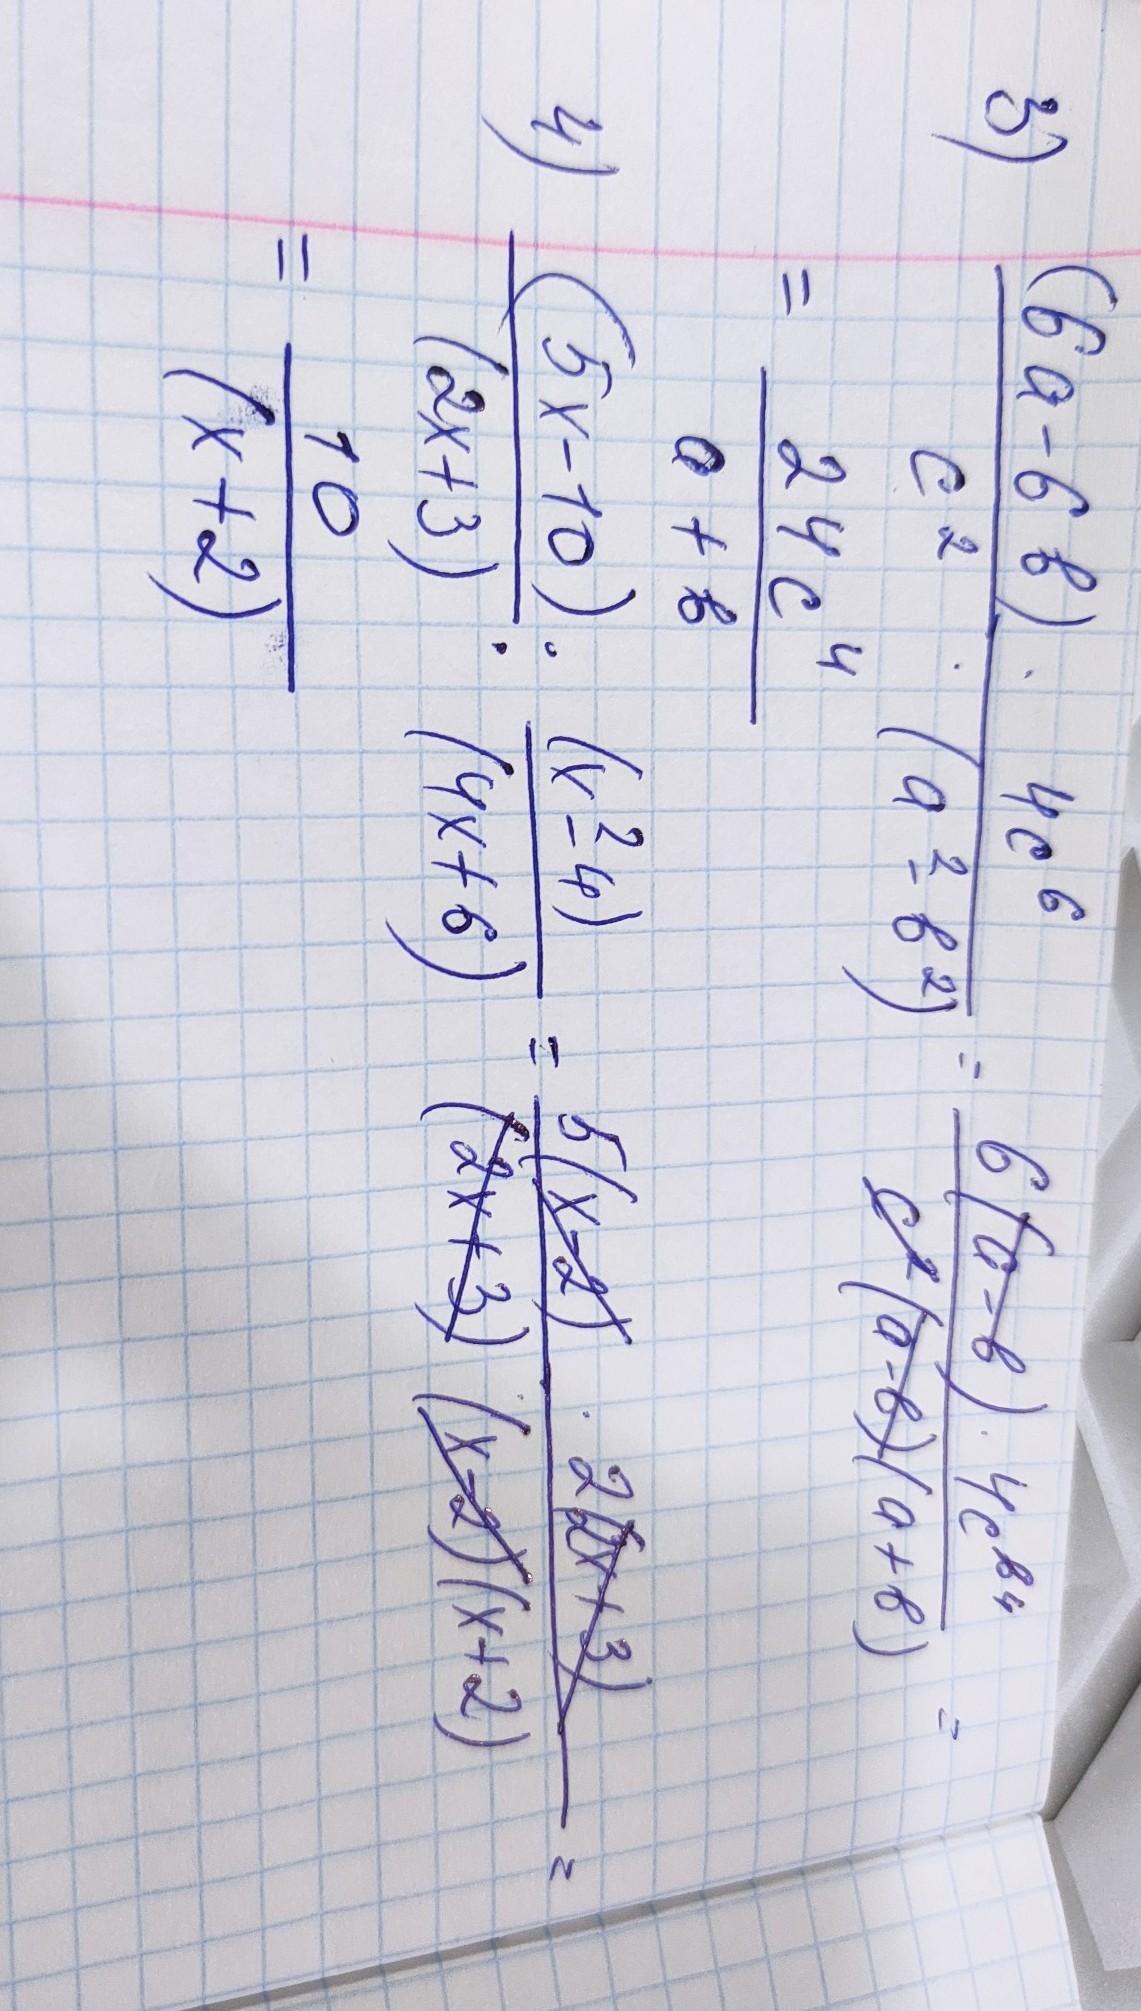 3) (6a-6b)/c² · 4c⁶/(a²-b²) = 6(a-b)·4c⁶ ⁴/c²(a-b)(a+b) =
= 24c⁴/a+b
4) (5x-10)/(2x+3) : (x²-4)/(4x+6) = 5(x-2) · 2(2x+3)/(2x+3)(x-2)(x+2) =
= 10/(x+2)